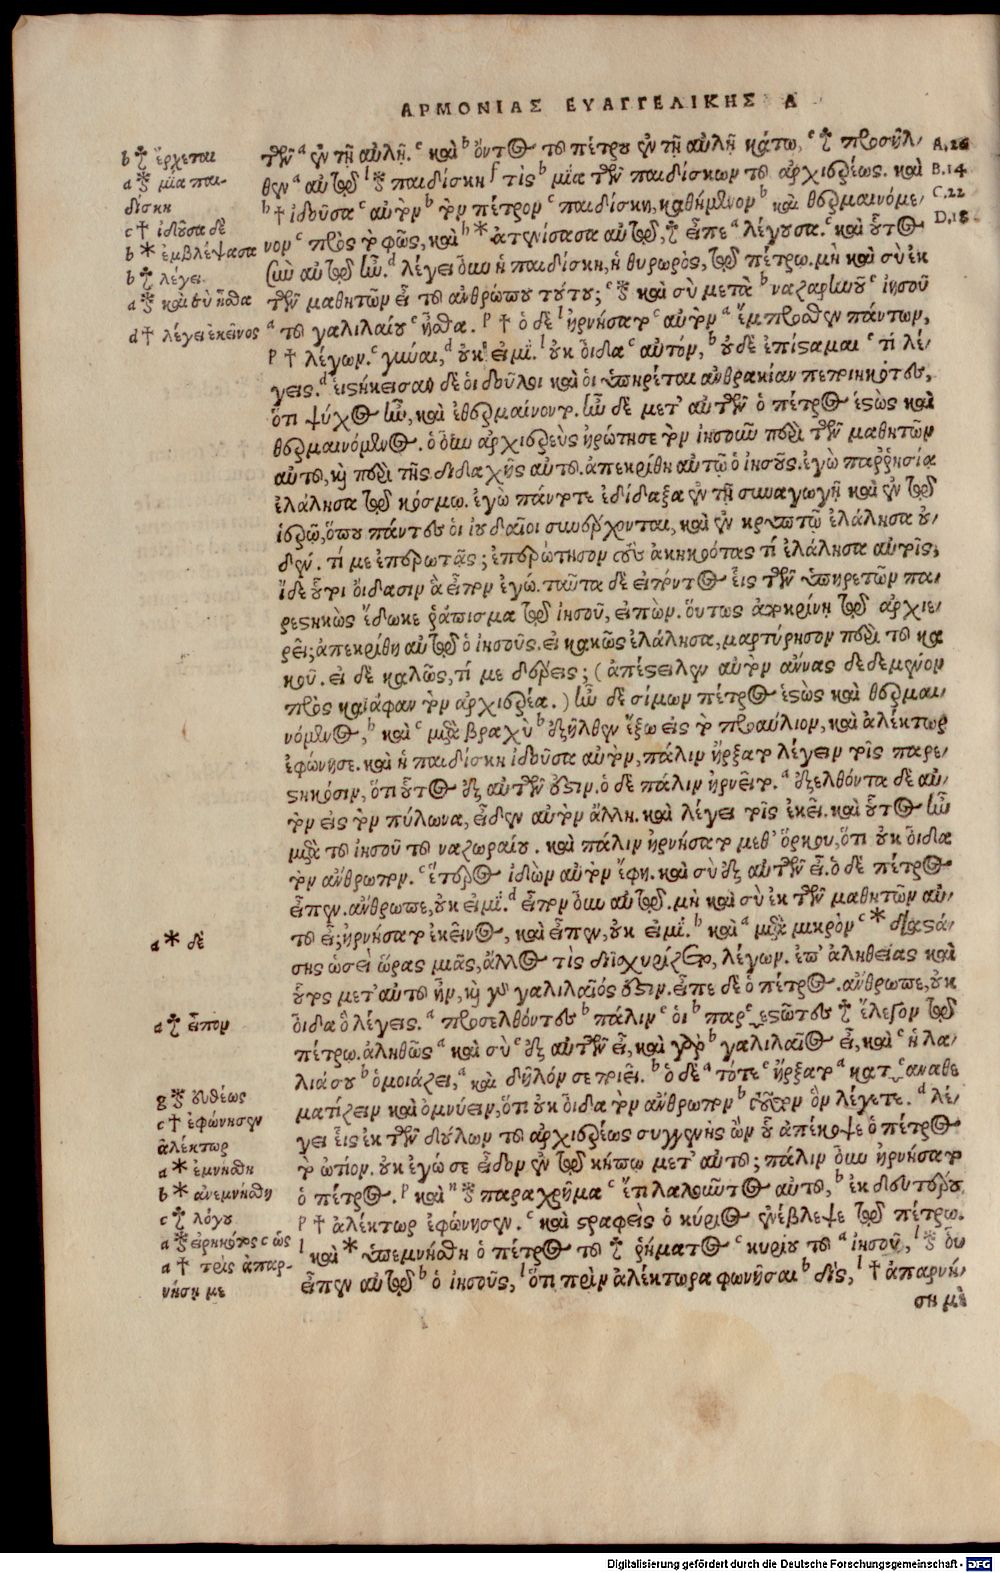 ΑΡΜΟΝΙΑΣ ΕΥΑΓΓΕΛΙΚΗΣ Δ
των ᵃ ἐν τῇ αὐλῇ. ᶜ καὶ ᵇ ὄντος τοῦ πέτρου ἐν τῇ αὐλῇ κάτω, ᶜ † προσῆλ-
θεν ᵃ αὐτῷ ˡ * παιδίσκη ᶠ τὶς ᵇ μία τῶν παιδίσκων τοῦ ἀρχιερέως. καὶ
ᵇ † ἰδοῦσα ᶜ αὐτὸν ᵇ τὸν πέτρον ᶜ παιδίσκη, καθήμενον ᵇ καὶ θερμαινόμε-
νον ᶜ πρὸς τὸ φῶς, καὶ ᵇ * ἀτενίσασα αὐτῷ, † εἶπε ᵃ λέγουσα. ᶜ καὶ οὗτος
σὺν αὐτῷ ἦν. ᵈ λέγει οὖν ἡ παιδίσκη, ἡ θυρωρὸς, τῷ πέτρῳ. μὴ καὶ σὺ ἐκ
τῶν μαθητῶν εἶ τοῦ ἀνθρώπου τούτου; ᶜ * καὶ σὺ μετὰ ᵇ ναζαρηνοῦ ᶜ ἰησοῦ
ᵃ τοῦ γαλιλαίου ᶜ ἦσθα. ᵖ † ὁ δὲ ˡ ἠρνήσατο ᶜ αὐτὸν ᵃ ἔμπροσθεν πάντων,
ᵖ † λέγων. ᶜ γύναι, ᵈ οὐκ εἰμί. ˡ οὐκ οἶδα ᶜ αὐτόν, ᵇ οὐδὲ ἐπίσταμαι ᶜ τί λέ-
γεις. ᵈ εἱστήκεισαν δὲ οἱ δοῦλοι καὶ οἱ ὑπηρέται ἀνθρακίαν πεποιηκότες,
ὅτι ψύχος ἦν, καὶ ἐθερμαίνοντο. ἦν δὲ μετ' αὐτῶν ὁ πέτρος ἑστὼς καὶ
θερμαινόμενος. ὁ οὖν ἀρχιερεὺς ἠρώτησε τὸν ἰησοῦν περὶ τῶν μαθητῶν
αὐτοῦ, καὶ περὶ τῆς διδαχῆς αὐτοῦ. ἀπεκρίθη αὐτῷ ὁ ἰησοῦς. ἐγὼ παῤῥησίᾳ
ἐλάλησα τῷ κόσμῳ. ἐγὼ πάντοτε ἐδίδαξα ἐν τῇ συναγωγῇ καὶ ἐν τῷ
ἱερῷ, ὅπου πάντες οἱ ἰουδαῖοι συνέρχονται, καὶ ἐν κρυπτῷ ἐλάλησα οὐ-
δέν. τί με ἐπερωτᾷς; ἐπερώτησον τοὺς ἀκηκοότας τί ἐλάλησα αὐτοῖς;
ἴδε οὗτοι οἴδασιν ἃ εἶπον ἐγώ. ταῦτα δὲ εἰπόντος εἷς τῶν ὑπηρετῶν πα-
ρεστηκὼς ἔδωκε ῥάπισμα τῷ ἰησοῦ, εἰπών. οὕτως ἀποκρίνῃ τῷ ἀρχιε-
ρεῖ; ἀπεκρίθη αὐτῷ ὁ ἰησοῦς. εἰ κακῶς ἐλάλησα, μαρτύρησον περὶ τοῦ κα
κοῦ. εἰ δὲ καλῶς, τί με δέρεις; (ἀπέστειλεν αὐτὸν ἄννας δεδεμένον
πρὸς καϊάφαν τὸν ἀρχιερέα.) ἦν δὲ σίμων πέτρος ἑστὼς καὶ θερμαι-
νόμενος, ᵇ καὶ ᶜ μετὰ βραχὺ ᵇ ἐξῆλθεν ἔξω εἰς τὸ προαύλιον, καὶ ἀλέκτωρ
ἐφώνησε. καὶ ἡ παιδίσκη ἰδοῦσα αὐτὸν, πάλιν ἤρξατο λέγειν τοῖς παρε-
στηκόσιν, ὅτι οὗτος ἐξ αὐτῶν ἐστιν. ὁ δὲ πάλιν ἠρνεῖτο. ᵃ ἐξελθόντα δὲ αὐ-
τὸν εἰς τὸν πύλωνα, εἶδεν αὐτὸν ἄλλη. καὶ λέγει τοῖς ἐκεῖ. καὶ οὗτος ἦν
μετὰ τοῦ ἰησοῦ τοῦ ναζωραίου. καὶ πάλιν ἠρνήσατο μεθ' ὅρκου, ὅτι οὐκ οἶδα
τὸν ἄνθρωπον. ᶜ ἕτερος ἰδὼν αὐτὸν ἔφη. καὶ σὺ ἐξ αὐτῶν εἶ. ὁ δὲ πέτρος
εἶπεν. ἄνθρωπε, οὐκ εἰμί. ᵈ εἶπον οὖν αὐτῷ. μὴ καὶ σὺ ἐκ τῶν μαθητῶν αὐ-
τοῦ εἶ; ἠρνήσατο ἐκεῖνος, καὶ εἶπεν, οὐκ εἰμί. ᵇ καὶ ᵃ μετὰ μικρὸν ᶜ * διαστά-
σης ὡσεὶ ὥρας μιᾶς, ἄλλος τὶς διϊσχυρίζετο, λέγων. ἐπ' ἀληθείας καὶ
οὗτος μετ' αὐτοῦ ἦν, καὶ γὰρ γαλιλαῖός ἐστιν. εἶπε δὲ ὁ πέτρος. ἄνθρωπε, οὐκ
οἶδα ὃ λέγεις. ᵃ προσελθόντες ᵇ πάλιν ᶜ οἱ ᵇ παρεστῶτες † ἔλεγον τῷ
πέτρῳ. ἀληθῶς ᵃ καὶ σὺ ᶜ ἐξ αὐτῶν εἶ, καὶ γὰρ ᵇ γαλιλαῖος εἶ, καὶ ᶜ ἡ λα-
λιά σου ᵇ ὁμοιάζει, ᵃ καὶ δῆλόν σε ποιεῖ. ᵇ ὁ δὲ ᵃ τότε ᶜ ἤρξατο ᵃ καταναθε
ματίζειν καὶ ὀμνύειν, ὅτι οὐκ οἶδα τὸν ἄνθρωπον ᵇ τοῦτον ὃν λέγετε. ᵈ λέ-
γει εἷς ἐκ τῶν δούλων τοῦ ἀρχιερέως συγγενὴς ὢν οὗ ἀπέκοψε ὁ πέτρος
τὸ ὠτίον. οὐκ ἐγώ σε εἶδον ἐν τῷ κήπῳ μετ' αὐτοῦ; πάλιν οὖν ἠρνήσατο
ὁ πέτρος. ᵖ καὶ ⁿ * παραχρῆμα ᶜ ἔτι λαλοῦντος αὐτοῦ, ᵇ ἐκ δευτέρου
ᵖ † ἀλέκτωρ ἐφώνησεν. ᶜ καὶ στραφεὶς ὁ κύριος ἐνέβλεψε τῷ πέτρῳ.
ˡ καὶ * ὑπεμνήσθη ὁ πέτρος τοῦ † ῥήματος ᶜ κυρίου τοῦ ᵃ ἰησοῦ, ˡ * οὗ
εἶπεν αὐτῷ ᵇ ὁ ἰησοῦς, ˡ ὅτι πρὶν ἀλέκτορα φωνῆσαι ᵇ δὶς, ˡ † ἀπαρνή-
ση με
b † ἔρχεται
a * μία παι-
δίσκη
c † ἰδοῦσα δὲ
b * ἐμβλέψασα
b † λέγει
a * καὶ σὺ ἦσθα
d † λέγει ἐκεῖνος
a * δὲ
a † εἶπον
g * εὐθέως
c † ἐφώνησεν
ἀλέκτωρ
a * ἐμνήσθη
b * ἀνεμνήσθη
c † λόγου
a * εἰρηκότος c ὡς
a † τρὶς ἀπαρ-
νήσῃ με
A.26
B.14
C.22
D.18
Digitalisierung gefördert durch die Deutsche Forschungsgemeinschaft - DFG